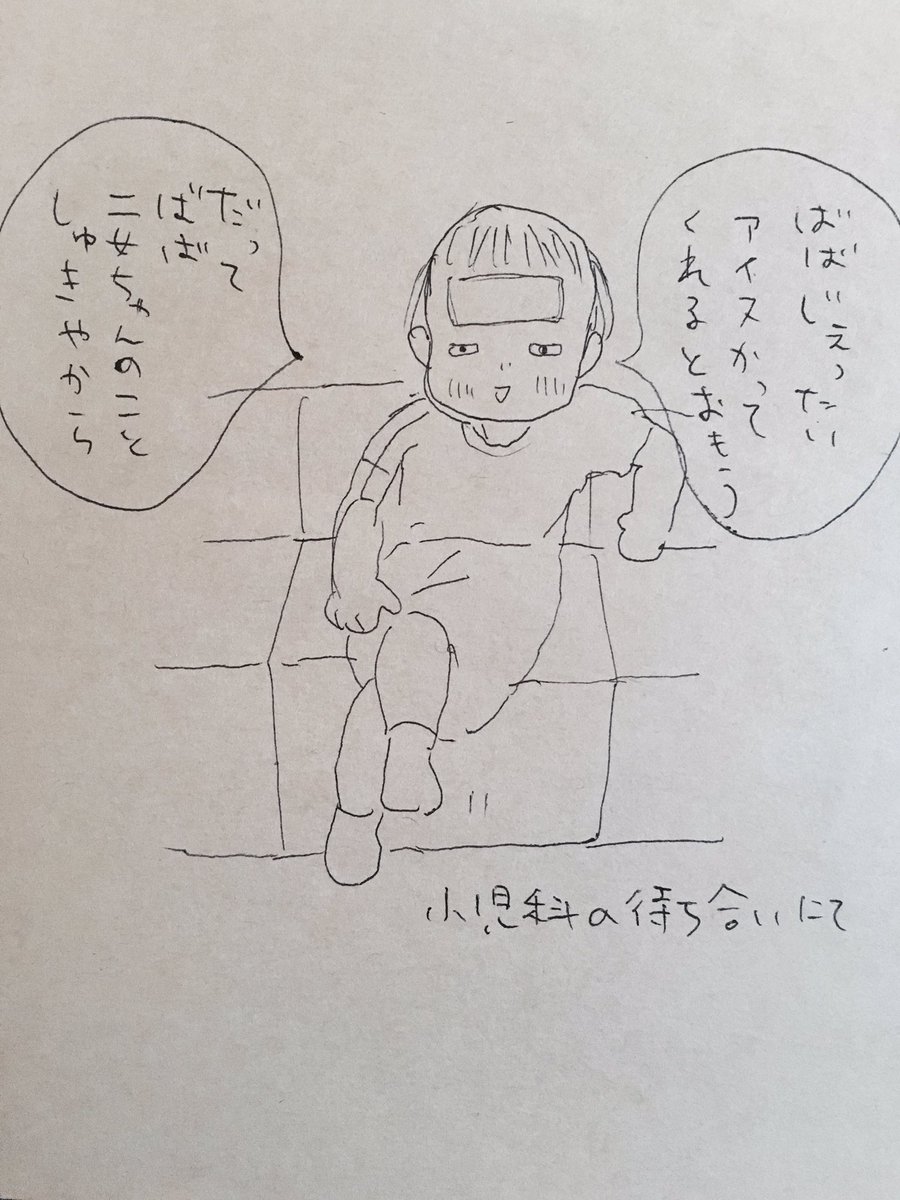 ばばじぇったい
アイスかって
くれるとおもう
だって
ばば
二女ちゃんのこと
しゅきやから
小児科の待ち合いにて